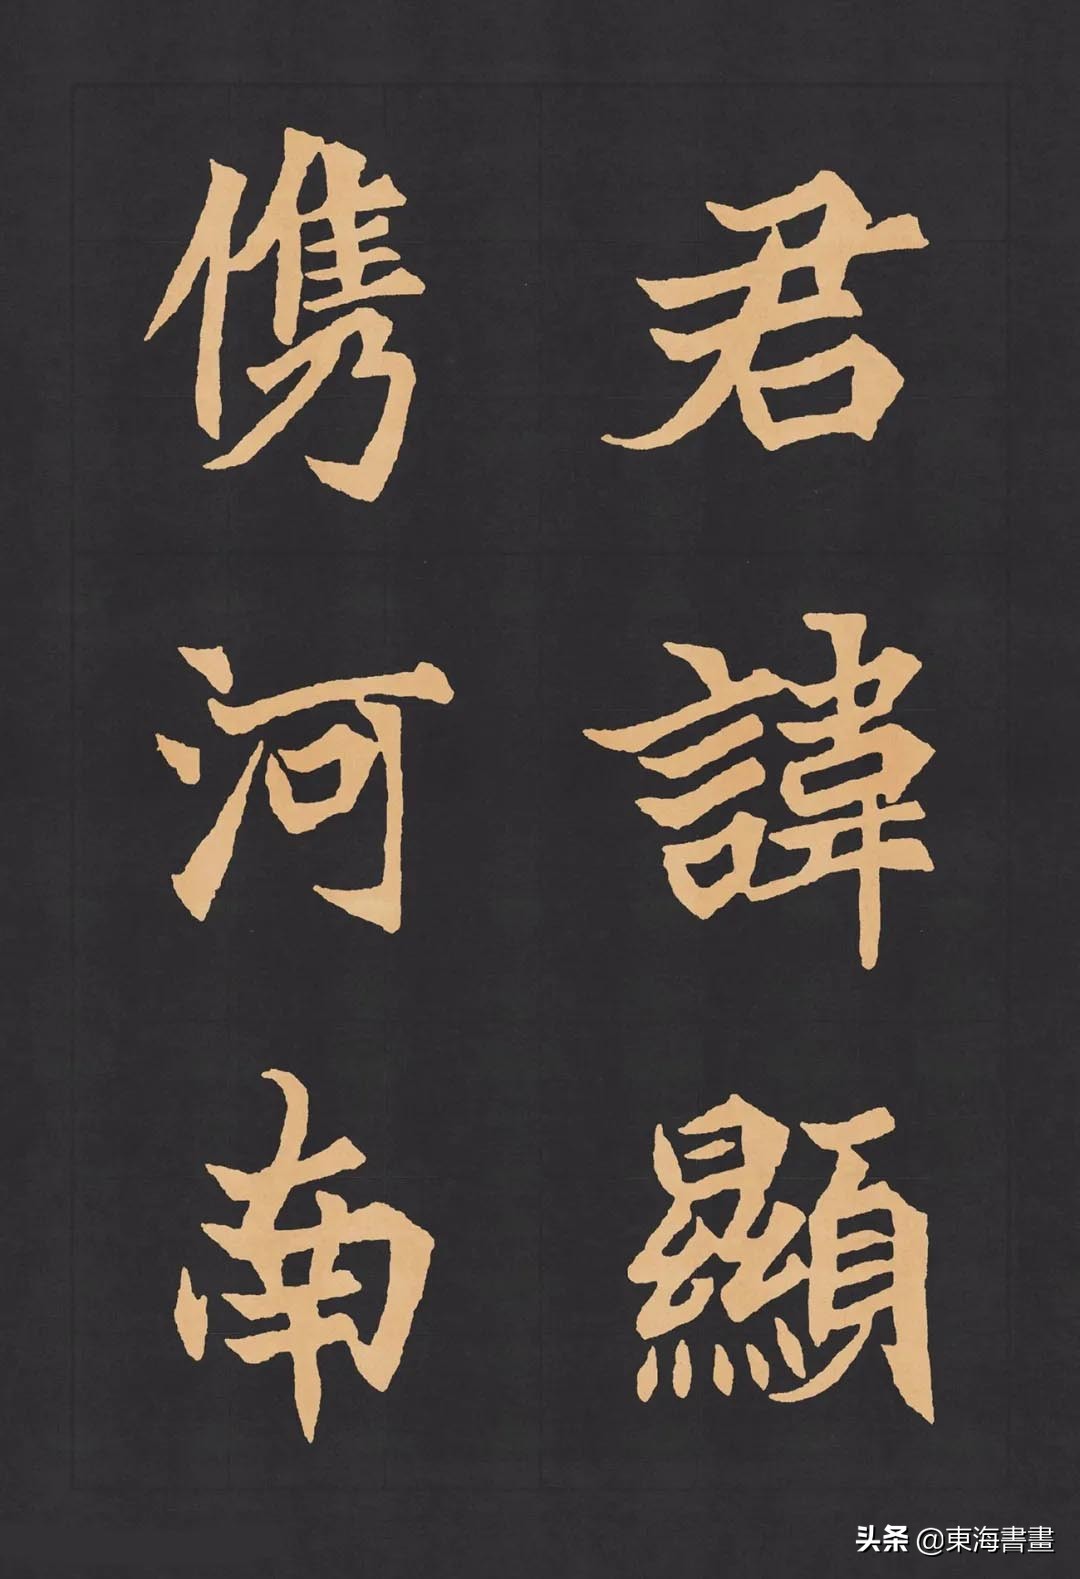 君諱顯
儁河南
头条 @東海書畫